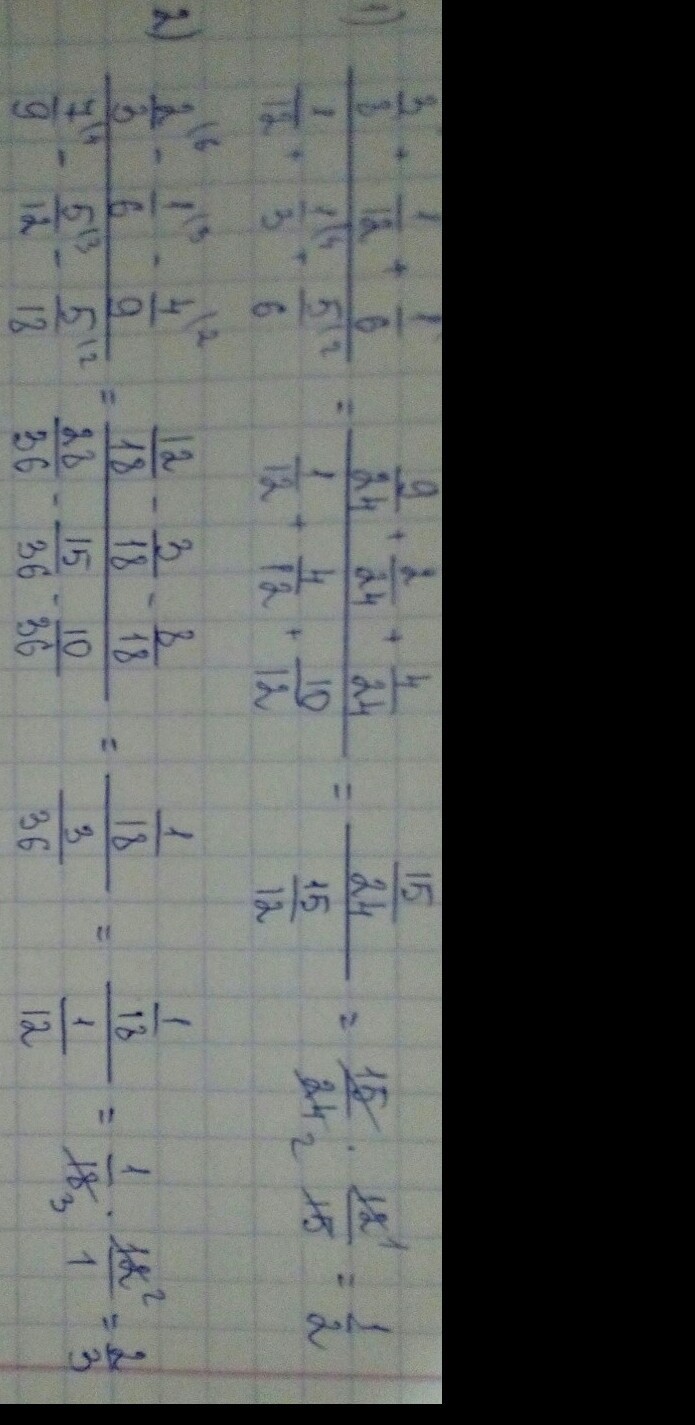 1) (3/8 + 1/12 + 1/6) / (1/12 + 1\4/3 + 5\2/6) = (9/24 + 2/24 + 4/24) / (1/12 + 4/12 + 10/12) = (15/24) / (15/12) = 15/24 2 · 12 1/15 = 1/2
2) (2\6/3 - 1\3/6 - 4\2/9) / (7\4/9 - 5\3/12 - 5\2/18) = (12/18 - 3/18 - 8/18) / (28/36 - 15/36 - 10/36) = (1/18) / (3/36) = (1/18) / (1/12) = 1/18 3 · 12 2/1 = 2/3